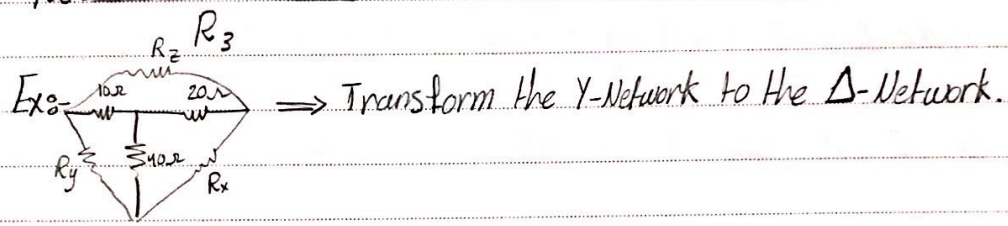 R3
Rz
Ex:- 10Ω 20Ω ⇒ Transform the Y-Network to the Δ-Network.
Ry 40Ω Rx